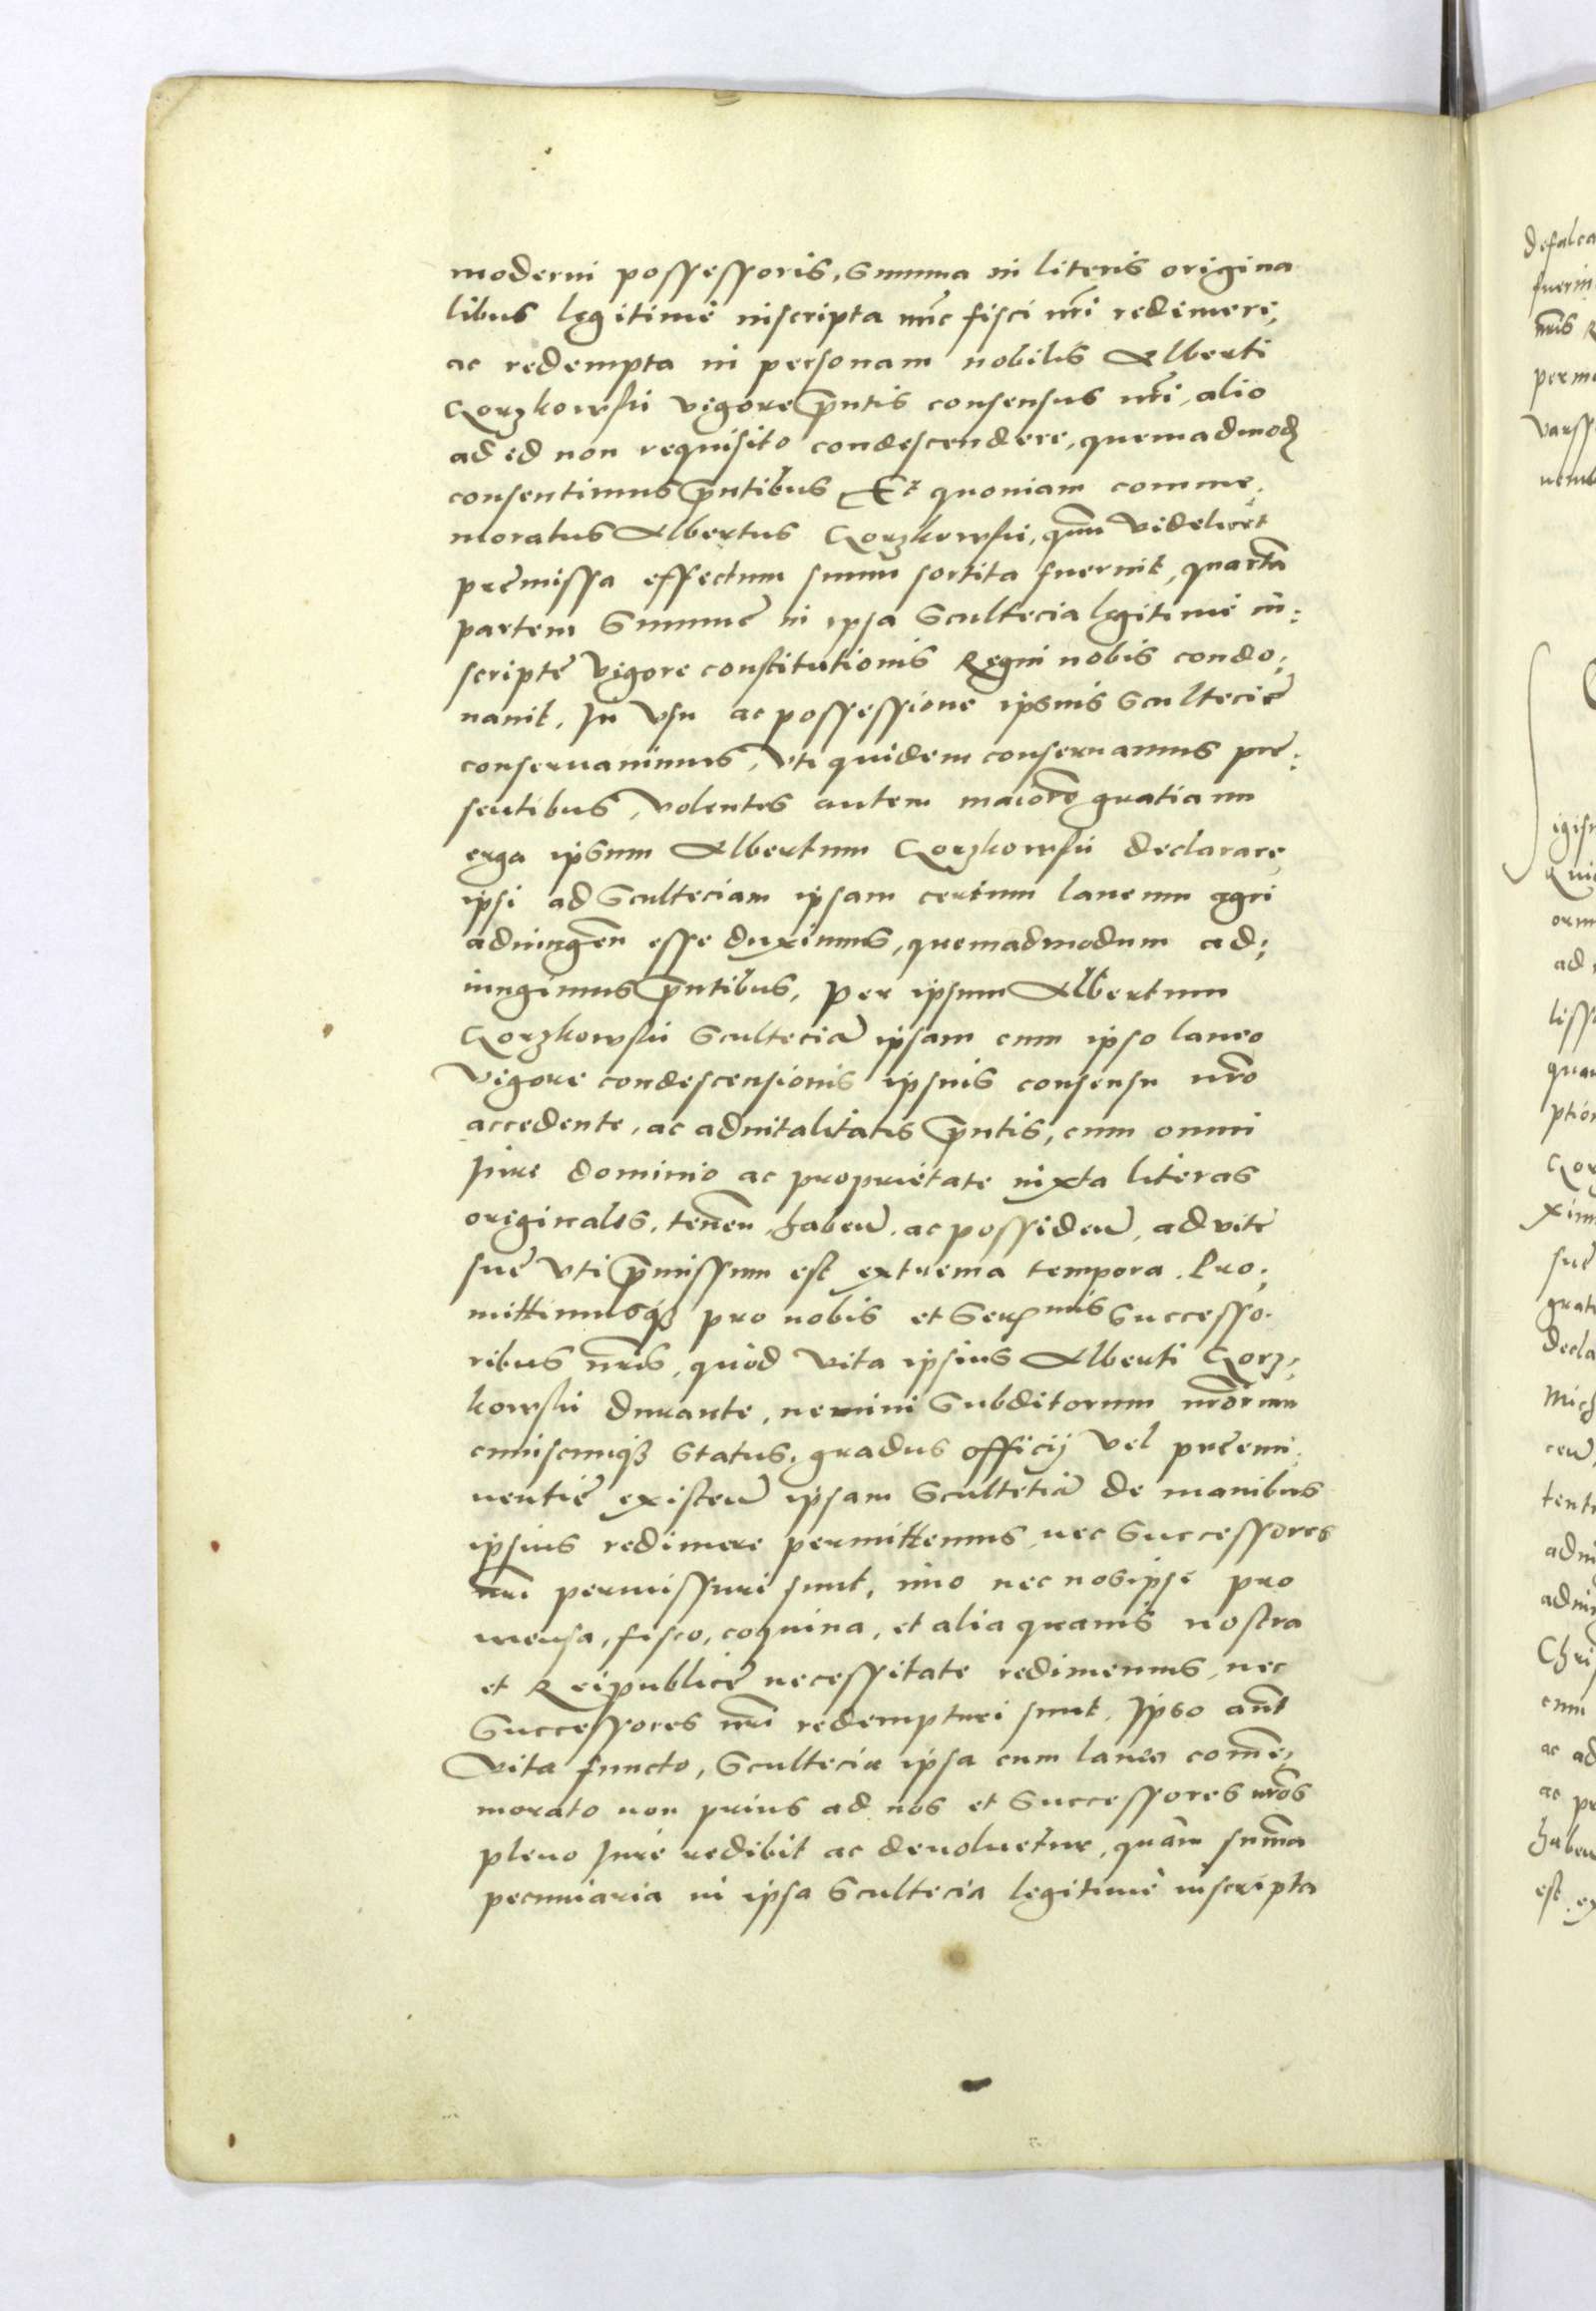 moderni possessoris, Summa in literis origina
libus legitime inscripta nunc fisci nri redimeri,
ac redempta in personam nobilis Alberti
Gorzkowski vigore pntis consensus nri, alio
ad id non requisito condescendere, quemadmodum
consentimus pntibus. Et quoniam comme,
moratus Albertus Gorzkowski, quum videlicet
premissa effectum suum sortita fuerint, quartam
partem Summe in ipsa Scultecia legitime in:
scripte vigore constitutionis Regni nobis condo:
nauit, In vsu ac possessione ipsius Scultecie
conseruauimus, vti quidem conseruamus pre:
sentibus, volentes autem maiorem gratiam
erga ipsum Albertum Gorzkowski declarare,
ipsi ad Sculteciam ipsam certum laneum agri
adiungen esse duximus, quemadmodum ad:
iungimus pntibus, per ipsum Albertum
Gorzkowski Scultecia ipsam cum ipso laneo
vigore condescensionis ipsius consensu nro
accedente, ac aduitalitatis pntis, cum omni
Jure dominio ac proprietate iuxta literas
originales, tenen, haben, ac possiden, ad vite
sue vti pmissum est extrema tempora. Pro:
mittimusq pro nobis et Sermis Successo:
ribus nris, quod vita ipsius Alberti Gorz:
kowski durante, nemini Subditorum nrorum
cuiuscunq status, gradus officij vel preemi:
nentie existen ipsam Scultetia de manibus
ipsius redimere permittemus, nec Successores
nri permissuri sunt, imo nec nosipsi pro
mensa, fisco, coquina, et alia quauis nostra
et Reipublice necessitate redimemus, nec
Successores nri redempturi sunt. Ipso aut
vita functo, Scultecia ipsa cum laneo come:
morato non prius ad nos et Successores nros
pleno Jure redibit ac deuoluetur, quam summa
pecuniaria in ipsa Scultecia legitime inscripta